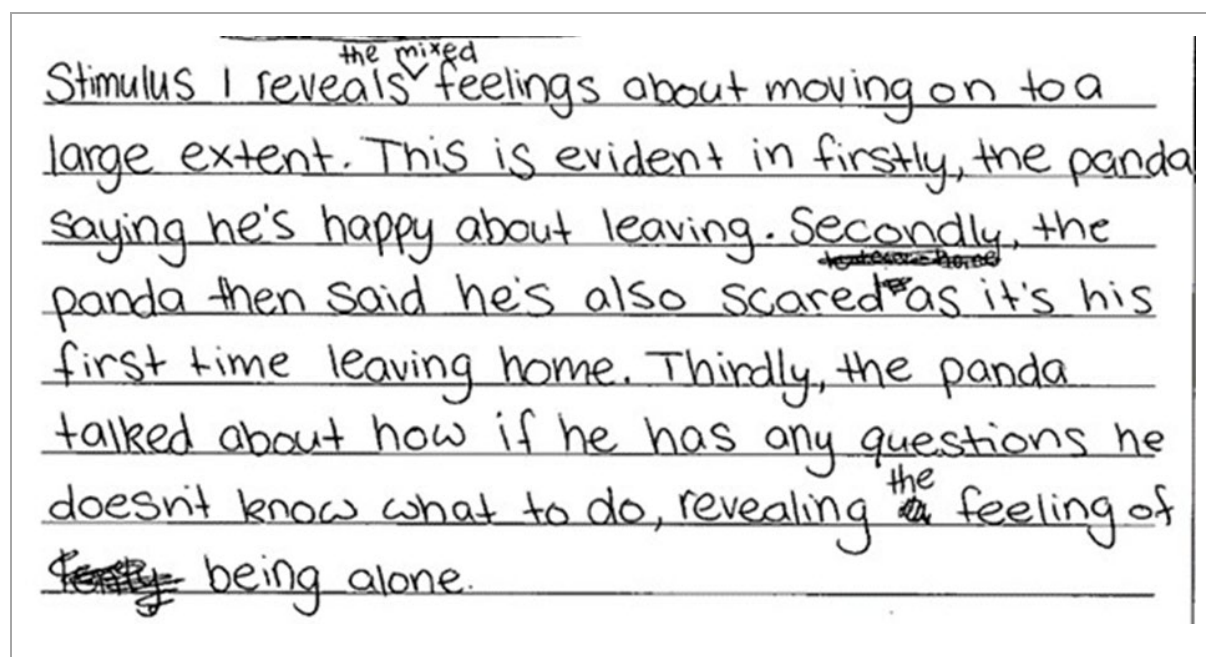 Stimulus 1 reveals the mixed feelings about moving on to a
large extent. This is evident in firstly, the panda
saying he's happy about leaving. Secondly, the
panda then said he's also scared as it's his
first time leaving home. Thirdly, the panda
talked about how if he has any questions he
doesn't know what to do, revealing the feeling of
being alone.